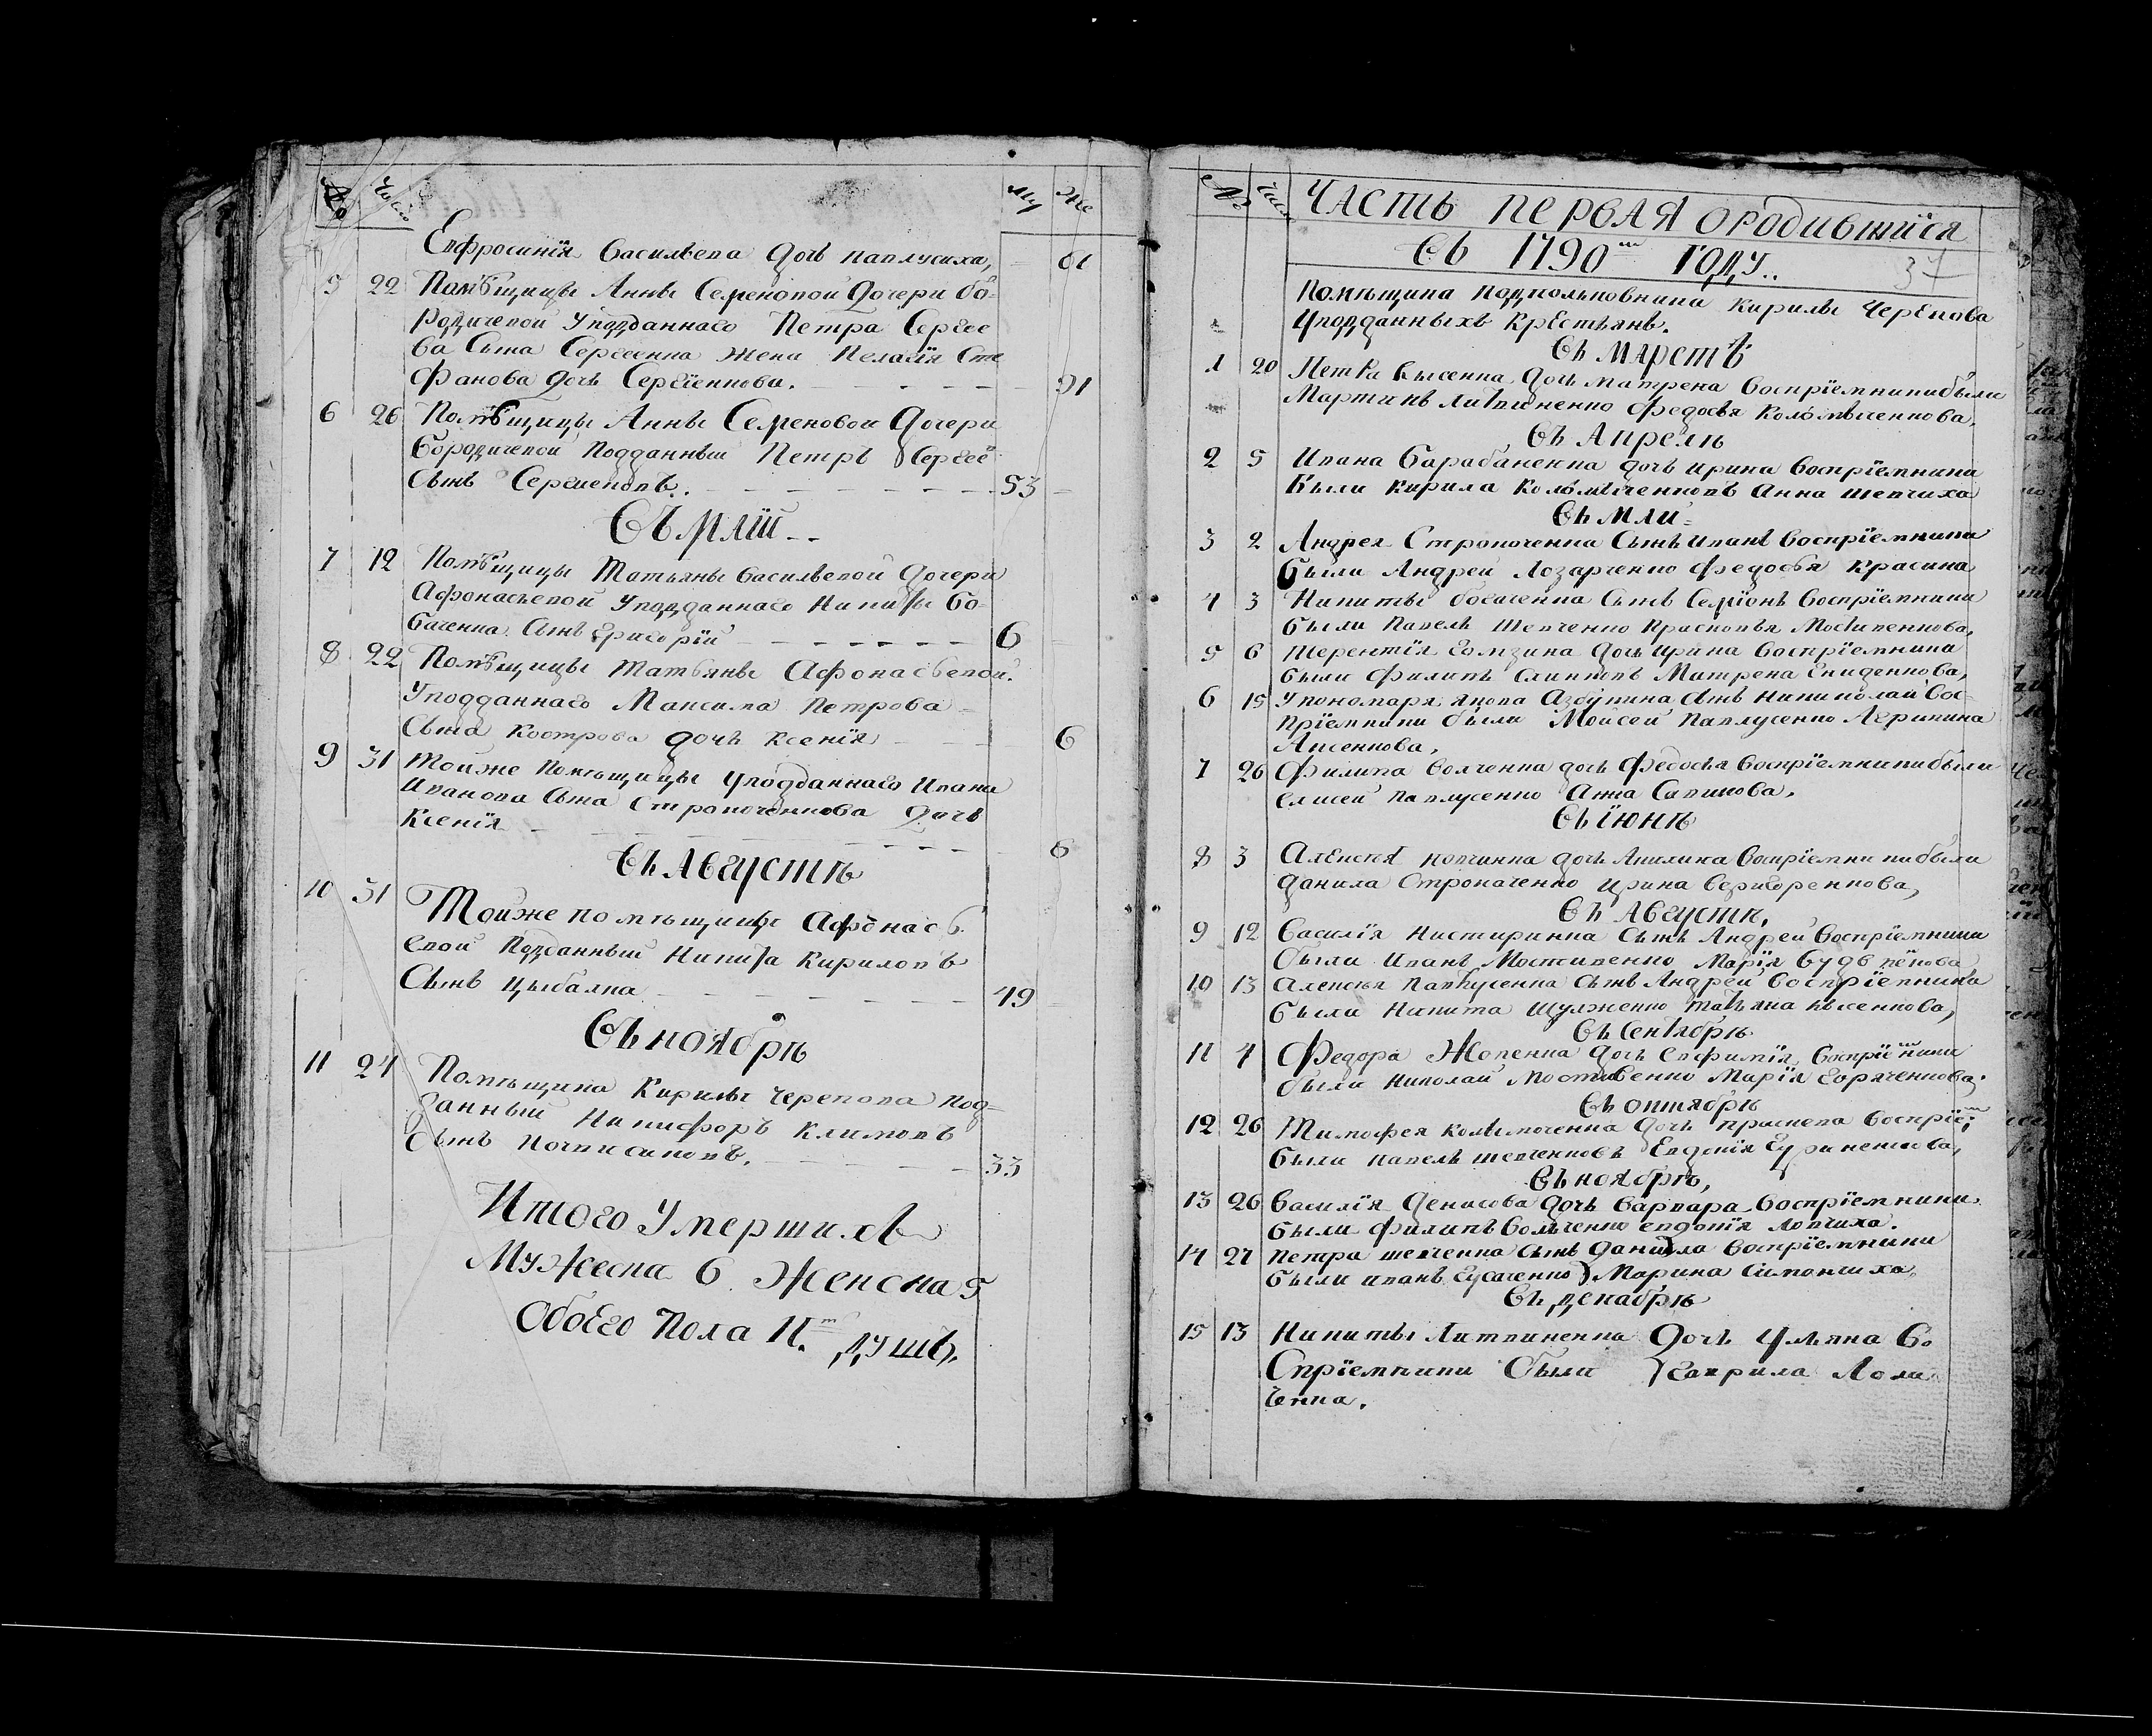 № Число Му Же
Евфросинія Васильева дочь павлусиха, 61
5 22 Помѣщицы Анны Семеновой Дочери бо-
родичевой Уподданнаго Петра Сергее
ва Сына Сергеенка жена Пелагія Сте
фанова дочь Сергіенкова. 51
6 26 Помѣщицы Анны Семеновой Дочери
Бородичевой Подданный Петръ Сергеевъ
Сынъ Сергиенковъ. 53
Въ маіи
7 12 Помѣщицы Татьяны Васильевой Дочери
Афонасьевой Уподданнаго Никиты Бо-
гаченка Сынъ Григорій 6
8 22 Помѣщицы Татьяны Афонасьевой
Уподданнаго Максима Петрова
Сына Кострова дочь Ксенія 6
9 31 Тойже Помѣщицы Уподданнаго Ивана
Иванова Сына Строкоченкова Дочь
Ксенія 6
Въ Августѣ
10 31 Тойже помѣщицы Афонась
евой Подданный Никита Кириловъ
Сынъ Цыбалка 49
Въ ноябрѣ
11 24 Помѣщика Кирилы Черепова под-
данный Никифоръ Климовъ
Сынъ 33
Итого Умерших
Мужеска 6 Женска 5
Обоего Пола 11. душъ.
№ Число ЧАСТЬ ПЕРВАЯ О родившихся
Въ 1790м ГОДУ..
37
Помѣщика Подполковника Кирилы Черепова
Уподданныхъ Крестьянъ.
Въ Мартѣ
1 20 Петра Кысенка Дочь Матрена Воспріемники были
Мартинъ Литвиненко Федосья Коломыченкова.
Въ Апрелѣ
2 5 Ивана Барабаненка дочь Ирина Воспріемники
Были Кирила Коломыченковъ Анна Шевчиха
Въ Маи
3 2 Андрея Строкоченка Сынъ Иванъ Воспріемники
были Андрей Лозарченко Федосья Красина
4 3 Никиты богаченка Сынъ Семіонъ Воспріемники
были Павелъ Шевченко Прасковья Мостивенкова,
5 6 Терентія Гомзина дочь Ирина Воспріемники
были Филипъ Матрена Гниденкова,
6 15 Упономаря якова Азбукина Сынъ Николай Вос
пріемники были Мойсей Павлусенко Агрипина
Аксенкова,
7 26 Филипа Волченка дочь Федосья Воспріемники были
Елисей Павлусенко Анна Савикова.
Въ Іюнѣ
8 3 Алексея Ковчинка дочь Акилина Воспріемники были
Данила Строкаченко Ирина Веригоренкова,
Въ Августѣ,
9 12 Василія Кистиринка Сынъ Андрей Воспріемники
были Иванъ Мостивенко Марія
10 13 Алексея Павлусенка Сынъ Андрей Воспріемника
были Никита Шулженко Татьяна Кысенкова,
Въ Сентябрѣ
11 4 Федора Жовенка Дочь Евфимія Воспріемники
были Николай Мостивенко Марія Горяченкова.
Въ октябрѣ
12 26 Тимофея Дочь Праскева Воспріем:
были Павелъ шевченковъ Евдокія Гуриненкова,
Въ ноябрѣ,
13 26 Василія Денисова Дочь Варвара Воспріемники
были Филипъ Волченко Евдокія Ловчиха.
14 27 Петра шевченка Сынъ Данила Воспріемники
были иванъ Гусаченко Марина Симончиха,
Въ декабрѣ
15 13 Никиты Литвиненка Дочь Ульяна Во
Спріемники были Гаврила Ломи
ченка.